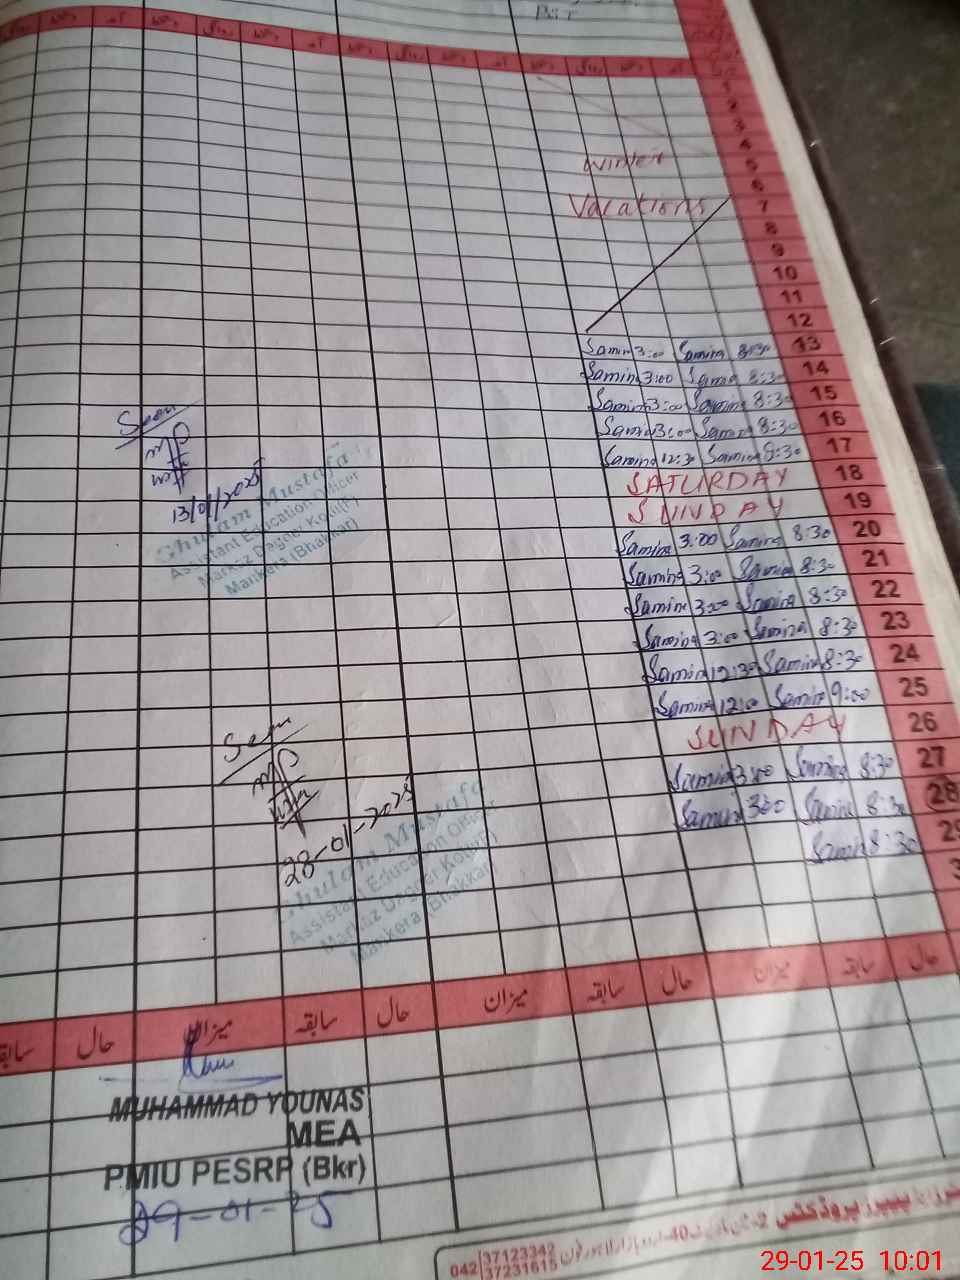 PST
آمد دستخط روانگی دستخط آمد دستخط روانگی دستخط آمد
1
2
3
4
winter 5
6
Vacations 7
8
9
10
11
12
Samin 3:00 Samina 8:30 13
Samina 3:00 Samina 8:30 14
Samina 3:00 Samina 8:30 15
Samina 3:00 Samina 8:30 16
Samina 12:30 Samina 8:30 17
SATURDAY 18
SUNDAY 19
Samina 3:00 Samina 8:30 20
Samina 3:00 Samina 8:30 21
Samina 3:00 Samina 8:30 22
Samina 3:00 Samina 8:30 23
Samina 12:30 Samina 8:30 24
Samina 12:00 Samina 9:00 25
SUNDAY 26
Samina 3:00 Samina 8:30 27
Samina 3:00 Samina 8:30 28
Samina 8:30 29
3
Seen
13/01/2025
Ghulam Mustafa
Assistant Education Officer
Markaz Dagger Kotli(F)
Mankera (Bhakkar)
Seen
28-01-2025
Ghulam Mustafa
Assistant Education Officer
Markaz Dagger Kotli(F)
Mankera (Bhakkar)
حال سابقہ میزان حال سابقہ میزان حال سابقہ میزان حال سابقہ
MUHAMMAD YOUNAS
MEA
PMIU PESRP (Bkr)
29-01-25
پیپر پروڈکٹس
042 37123342
37231615
29-01-25 10:01